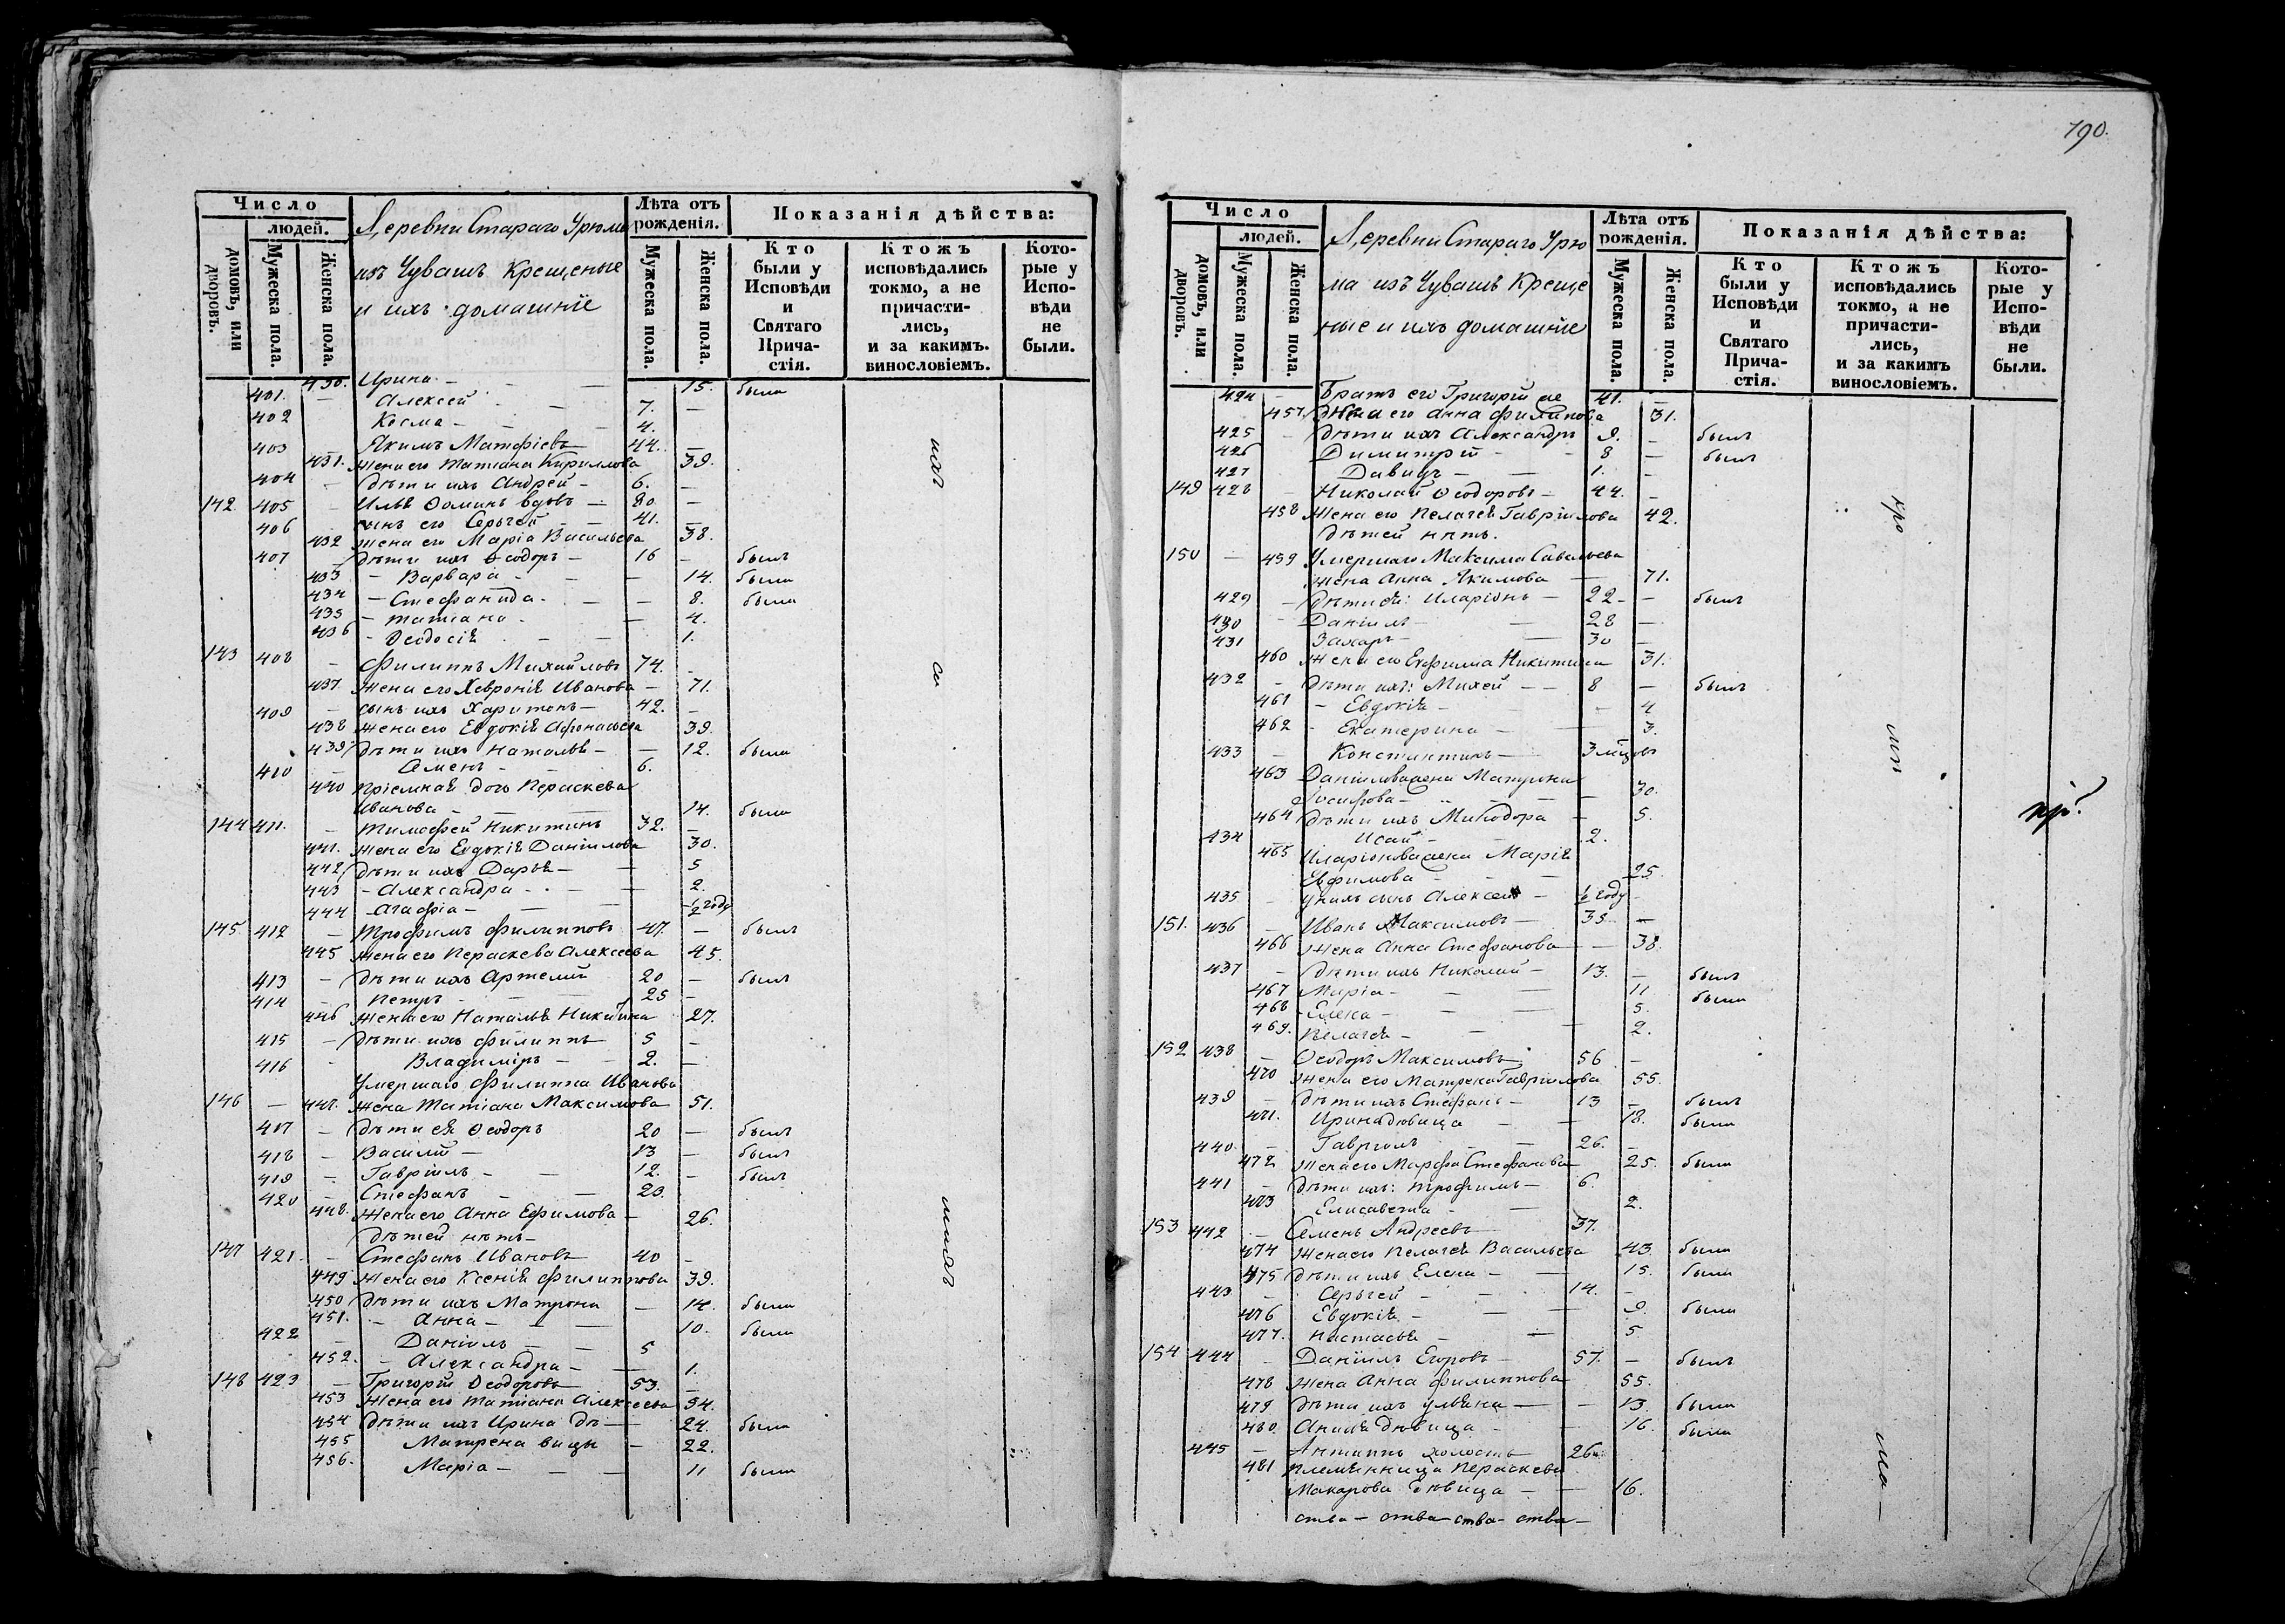 190.
Число
людей.
домовъ, или дворовъ.
Мужеска пола.
Женска пола.
Деревни Стараго Урюма
изъ Чувашъ Крещеные
и ихъ домашніе
Лѣта отъ рожденія.
Мужеска пола.
Женска пола.
Показанія дѣйства:
Кто были у Исповѣди и Святаго Прича-стія.
Ктожъ исповѣдались токмо, а не причасти-лись, и за какимъ. винословіемъ.
Кото-рые у Испо-вѣди не были.
430. Ирина — 15. была
401. — Алексей — 7. —
402 Косма — 4.
403 Якимъ Матфіевъ 44. —
431. Жена его Татіана Кириллова 39.
404 — Дѣти ихъ Андрей — 6. —
142 405 — Илья Ѳоминъ вдовъ — 80 —
406 сынъ его Сергей — 41. —
432 жена его Марія Васильева 38.
407 Дѣти ихъ Ѳеодоръ — 16 — былъ
433 — Варвара — 14. была
434 — Стефанида — 8. была
435 — Татіана — 4.
436 — Ѳеодосія — 1.
143 408 — Филиппъ Михайловъ 74. —
437. Жена его Хевронія Иванова — 71.
409 — сынъ ихъ Харитонъ — 42. —
438 Жена его Евдокія Афонасьева 39.
439 Дѣти ихъ Наталья — 12. была
410 — Семенъ — 6.
440 Пріемная дочь Пераскева
Иванова — 14. была
144 411. — Тимофей Никитинъ 32. —
441. Жена его Евдокія Даніилова 30.
442 Дѣти ихъ Дарья — 5
443 — Александра — 2.
444 — Агафія — ½ году
145. 412 — Трофимъ Филипповъ 47. — былъ
445 Жена его Пераскева Алексеева 45.
413 — Дѣти ихъ Артемій 20 — былъ
414 — Петръ — 25 —
446 Жена его Наталья Никитина 27.
415 — Дѣти ихъ Филиппъ 5 —
416 — Владиміръ — 2. —
Умершаго Филиппа Иванова
146 — 447. Жена Татіана Максимова 51.
417 — Дѣти ея Ѳеодоръ 20 — былъ
418 — Василій — 13 — былъ
419 — Гавріилъ — 12. — былъ
420 — Стефанъ — 29.
448. Жена его Анна Ефимова — 26.
Дѣтей нѣтъ —
147 421. — Стефанъ Ивановъ 40 —
449 Жена его Ксенія Филиппова 39.
450 Дѣти ихъ Матрона — 14. была
451. — Анна — 10. была
422 — Даніилъ — 5
452. — Александра — 1.
148 423 — Григорій Ѳеодоровъ 53. —
453 Жена его Татіана Алексеева 54.
454 Дѣти ихъ Ирина дѣ — 24. была
455 Матрена вицы — 22.
456. Марія — 11 была
ихъ
си
шихъ
Число
людей.
домовъ, или дворовъ.
Мужеска пола.
Женска пола.
Деревни Стараго Урю
ма изъ Чувашъ Креще
ные и ихъ домашніе
Лѣта отъ рожденія.
Мужеска пола.
Женска пола.
Показанія дѣйства:
Кто были у Исповѣди и Святаго Прича-стія.
Ктожъ исповѣдались токмо, а не причасти-лись, и за какимъ винословіемъ.
Кото-рые у Испо-вѣди не были.
424 — Братъ его Григорій 41. —
457. Жена его Анна Филипова 31.
425 — Дѣти ихъ Александръ 9. — былъ
426 Димитрій — 8 — былъ
427 Давидъ — 1. —
149 428 — Николай Ѳеодоровъ — 44. —
458 Жена его Пелагея Гавріилова 42.
Дѣтей нѣтъ.
150 — 459 Умершаго Максима Савельева
жена Анна Якимова — 71.
429 — Дѣти ея: Иларіонъ — 22 — — былъ
430 — Даніилъ — 28 —
431 Захаръ — 30 —
460 Жена его Евфимія Никитина 31.
432 — Дѣти ихъ: Михей — 8 — былъ
461 — Евдокія — 4
462 — Екатерина — 3.
433 — Константинъ — 3 мѣцовъ
463 Даніилова жена Матрона
Іосифова — 30.
464 Дѣти ихъ Минодора — 5.
434 Исай — 2.
465 Иларіонова жена Марія
Евфимова — 25.
435 — у нихъ сынъ Алексей — ½ году —
151. 436 — Иванъ Максимовъ — 38 —
466 Жена Анна Стефанова — 38.
437 — Дѣти ихъ Николай — 13. — былъ
467 Марія — 11 была
468 Елена — 5.
469. Пелагея — 2.
152 438 — Ѳеодоръ Максимовъ 56 —
470 Жена его Матрена Гавріилова 55.
439 — Дѣти ихъ Стефанъ — 13 — былъ
471. Ирина дѣвица — 18. была
440. — Гавріилъ — 26. —
472 Жена его Марфа Стефанова 25. была
441 — Дѣти ихъ: Трофимъ — 6.
473 Елисавета — 2.
153 442 — Семенъ Андреевъ 37.
474 Жена его Пелагея Васильева 43. была
475 Дѣти ихъ Елена — 15. была
443 — Сергей — 14. —
476 Евдокія — 9. была
477. Настасья — 5
154 444 — Даніилъ Егоровъ — 57. — былъ
478 Жена Анна Филиппова 55.
479 Дѣти ихъ Ульяна — 13. была
480. дѣвица — 16. была
445 — Антипъ холостъ 26.
481 Племянница Пераскева
Макарова дѣвица — 16.
ства — ства — ства — ства —
кро
лѣ
ма —